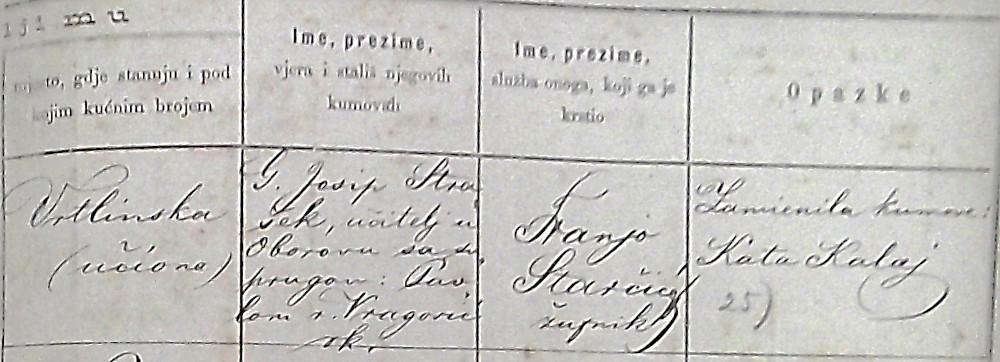 imu
to, gdje stanuju i pod
kojim kućnim brojem
Ime, prezime,
vjera i stališ njegovih
kumovah
Ime, prezime,
služba onoga, koji ga je
krstio
Opazke
Vrtlinska
(učiona)
G. Josip Stra
šek, učitelj u
Oborovu sa su
prugom: Pav
lom r.
Franjo
Starčić
župnik)
Zamienila kumove:
Kata Kalaj
25)